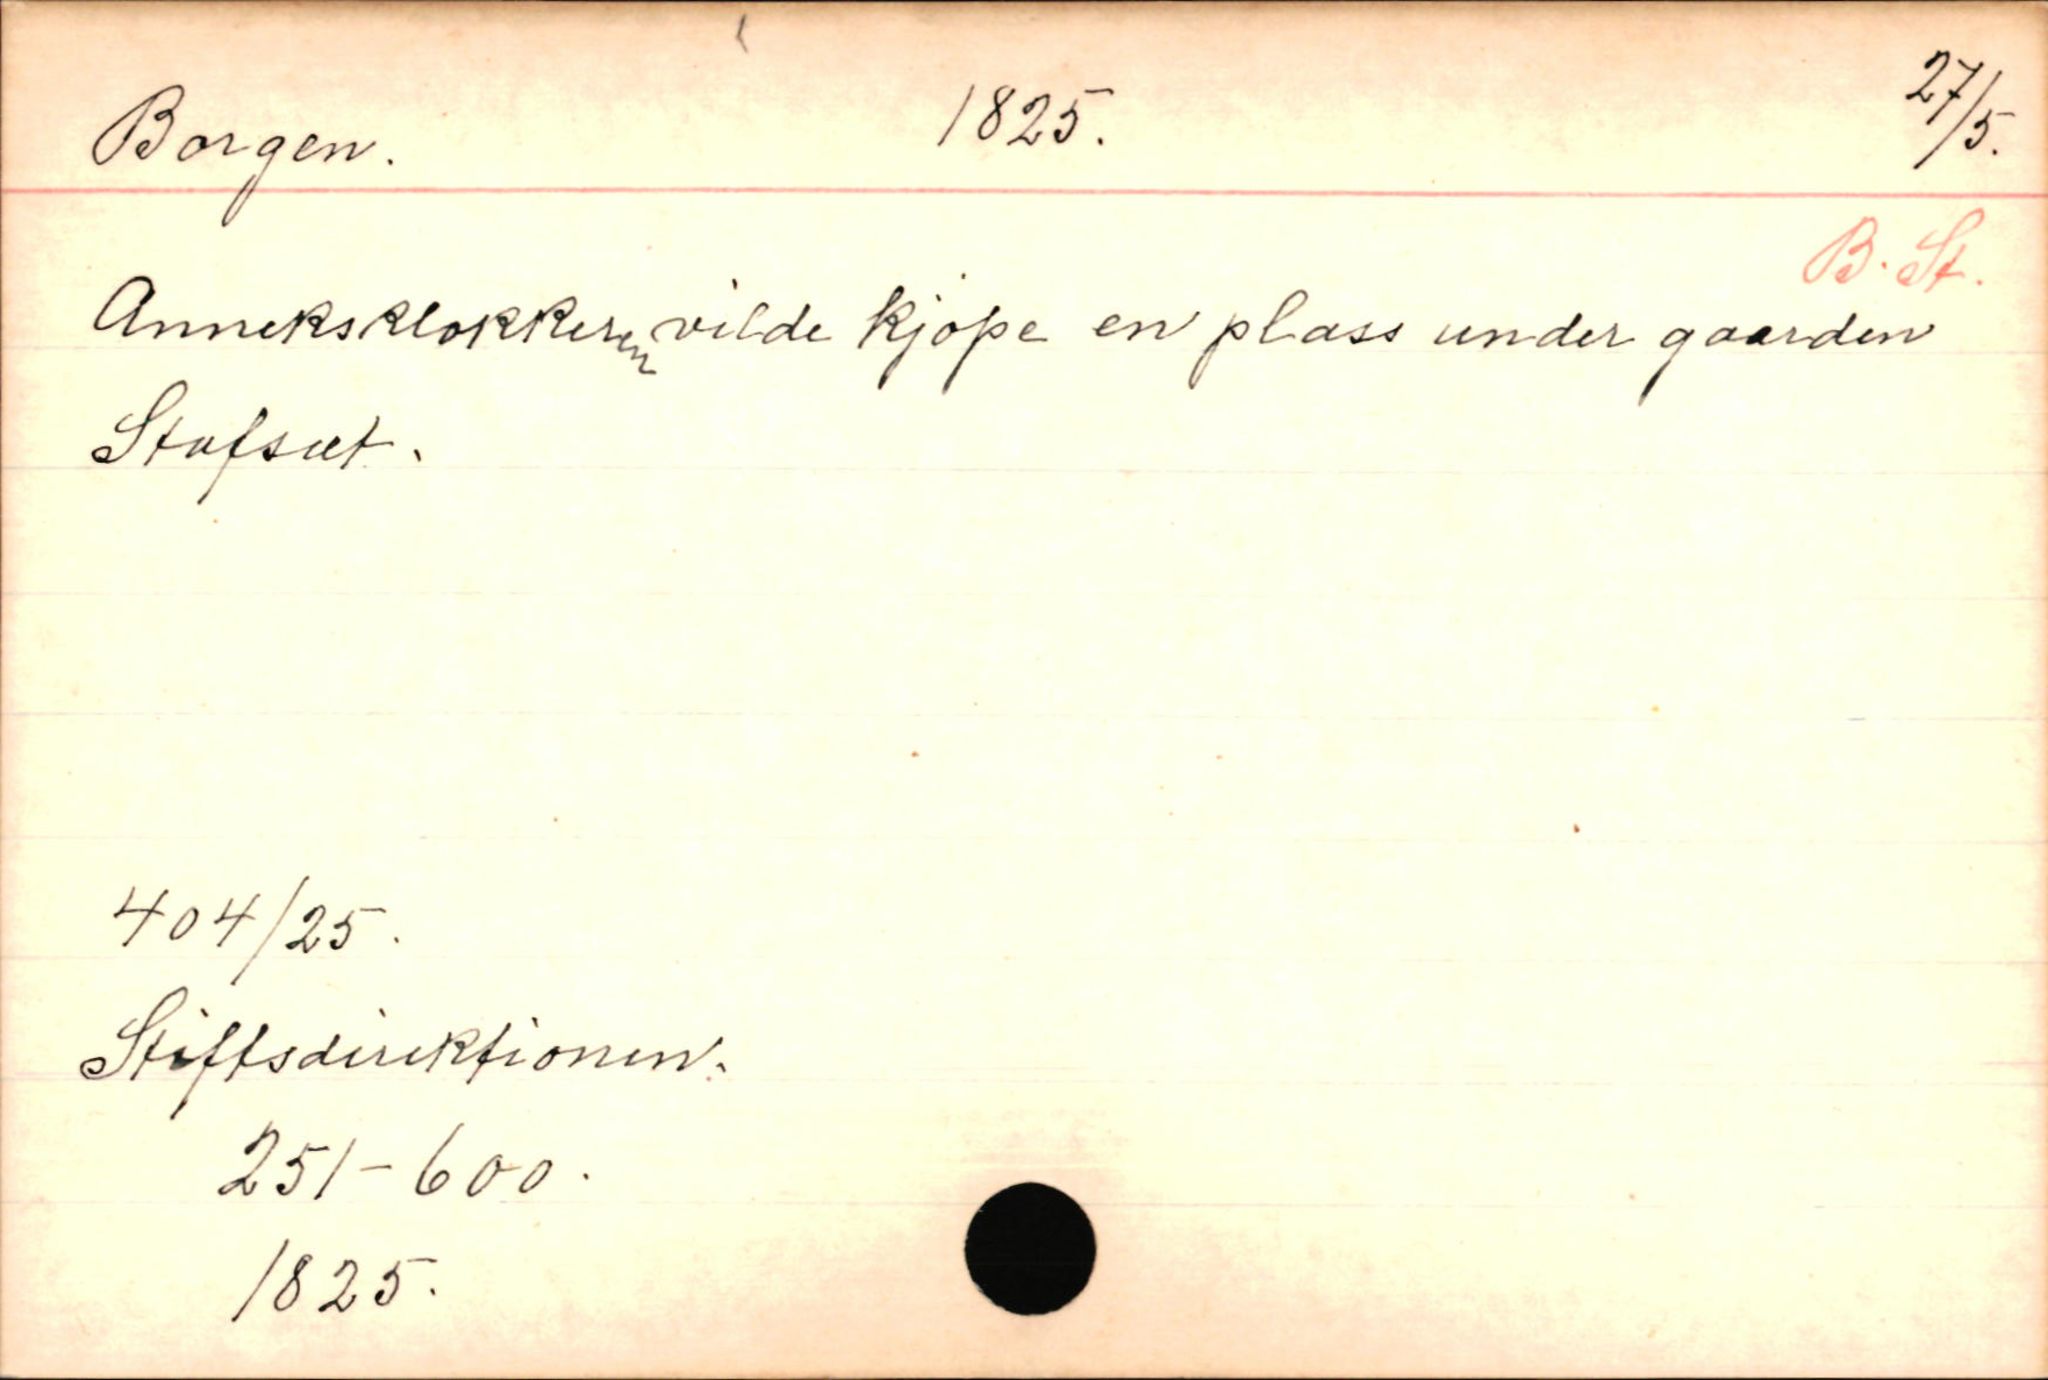 Borgen. 1825. 27/5.
B. St.
Anneksklokkeren vilde kjøpe en plass under gaarden
Stafsæt.
404/25.
Stiftsdirektionen.
251-600.
1825.